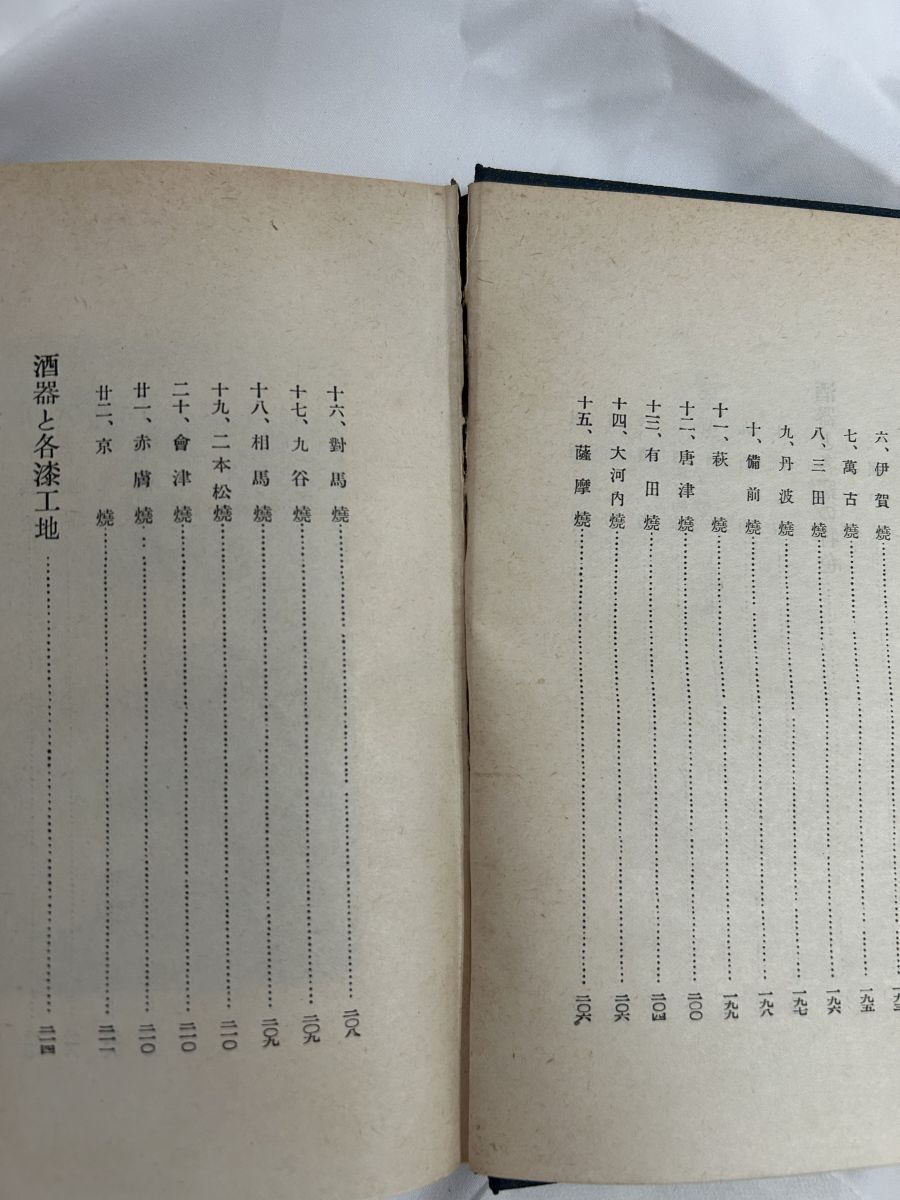 六、伊賀燒……一九三
七、萬古燒……一九五
八、三田燒……一九六
九、丹波燒……一九七
十、備前燒……一九八
十一、萩燒……一九九
十二、唐津燒……二〇〇
十三、有田燒……二〇四
十四、大河內燒……二〇六
十五、薩摩燒……二〇六
十六、對馬燒……二〇八
十七、九谷燒……二〇九
十八、相馬燒……二〇九
十九、二本松燒……二一〇
二十、會津燒……二一〇
廿一、赤膚燒……二一〇
廿二、京燒……二一一
酒器と各漆工地……二一四